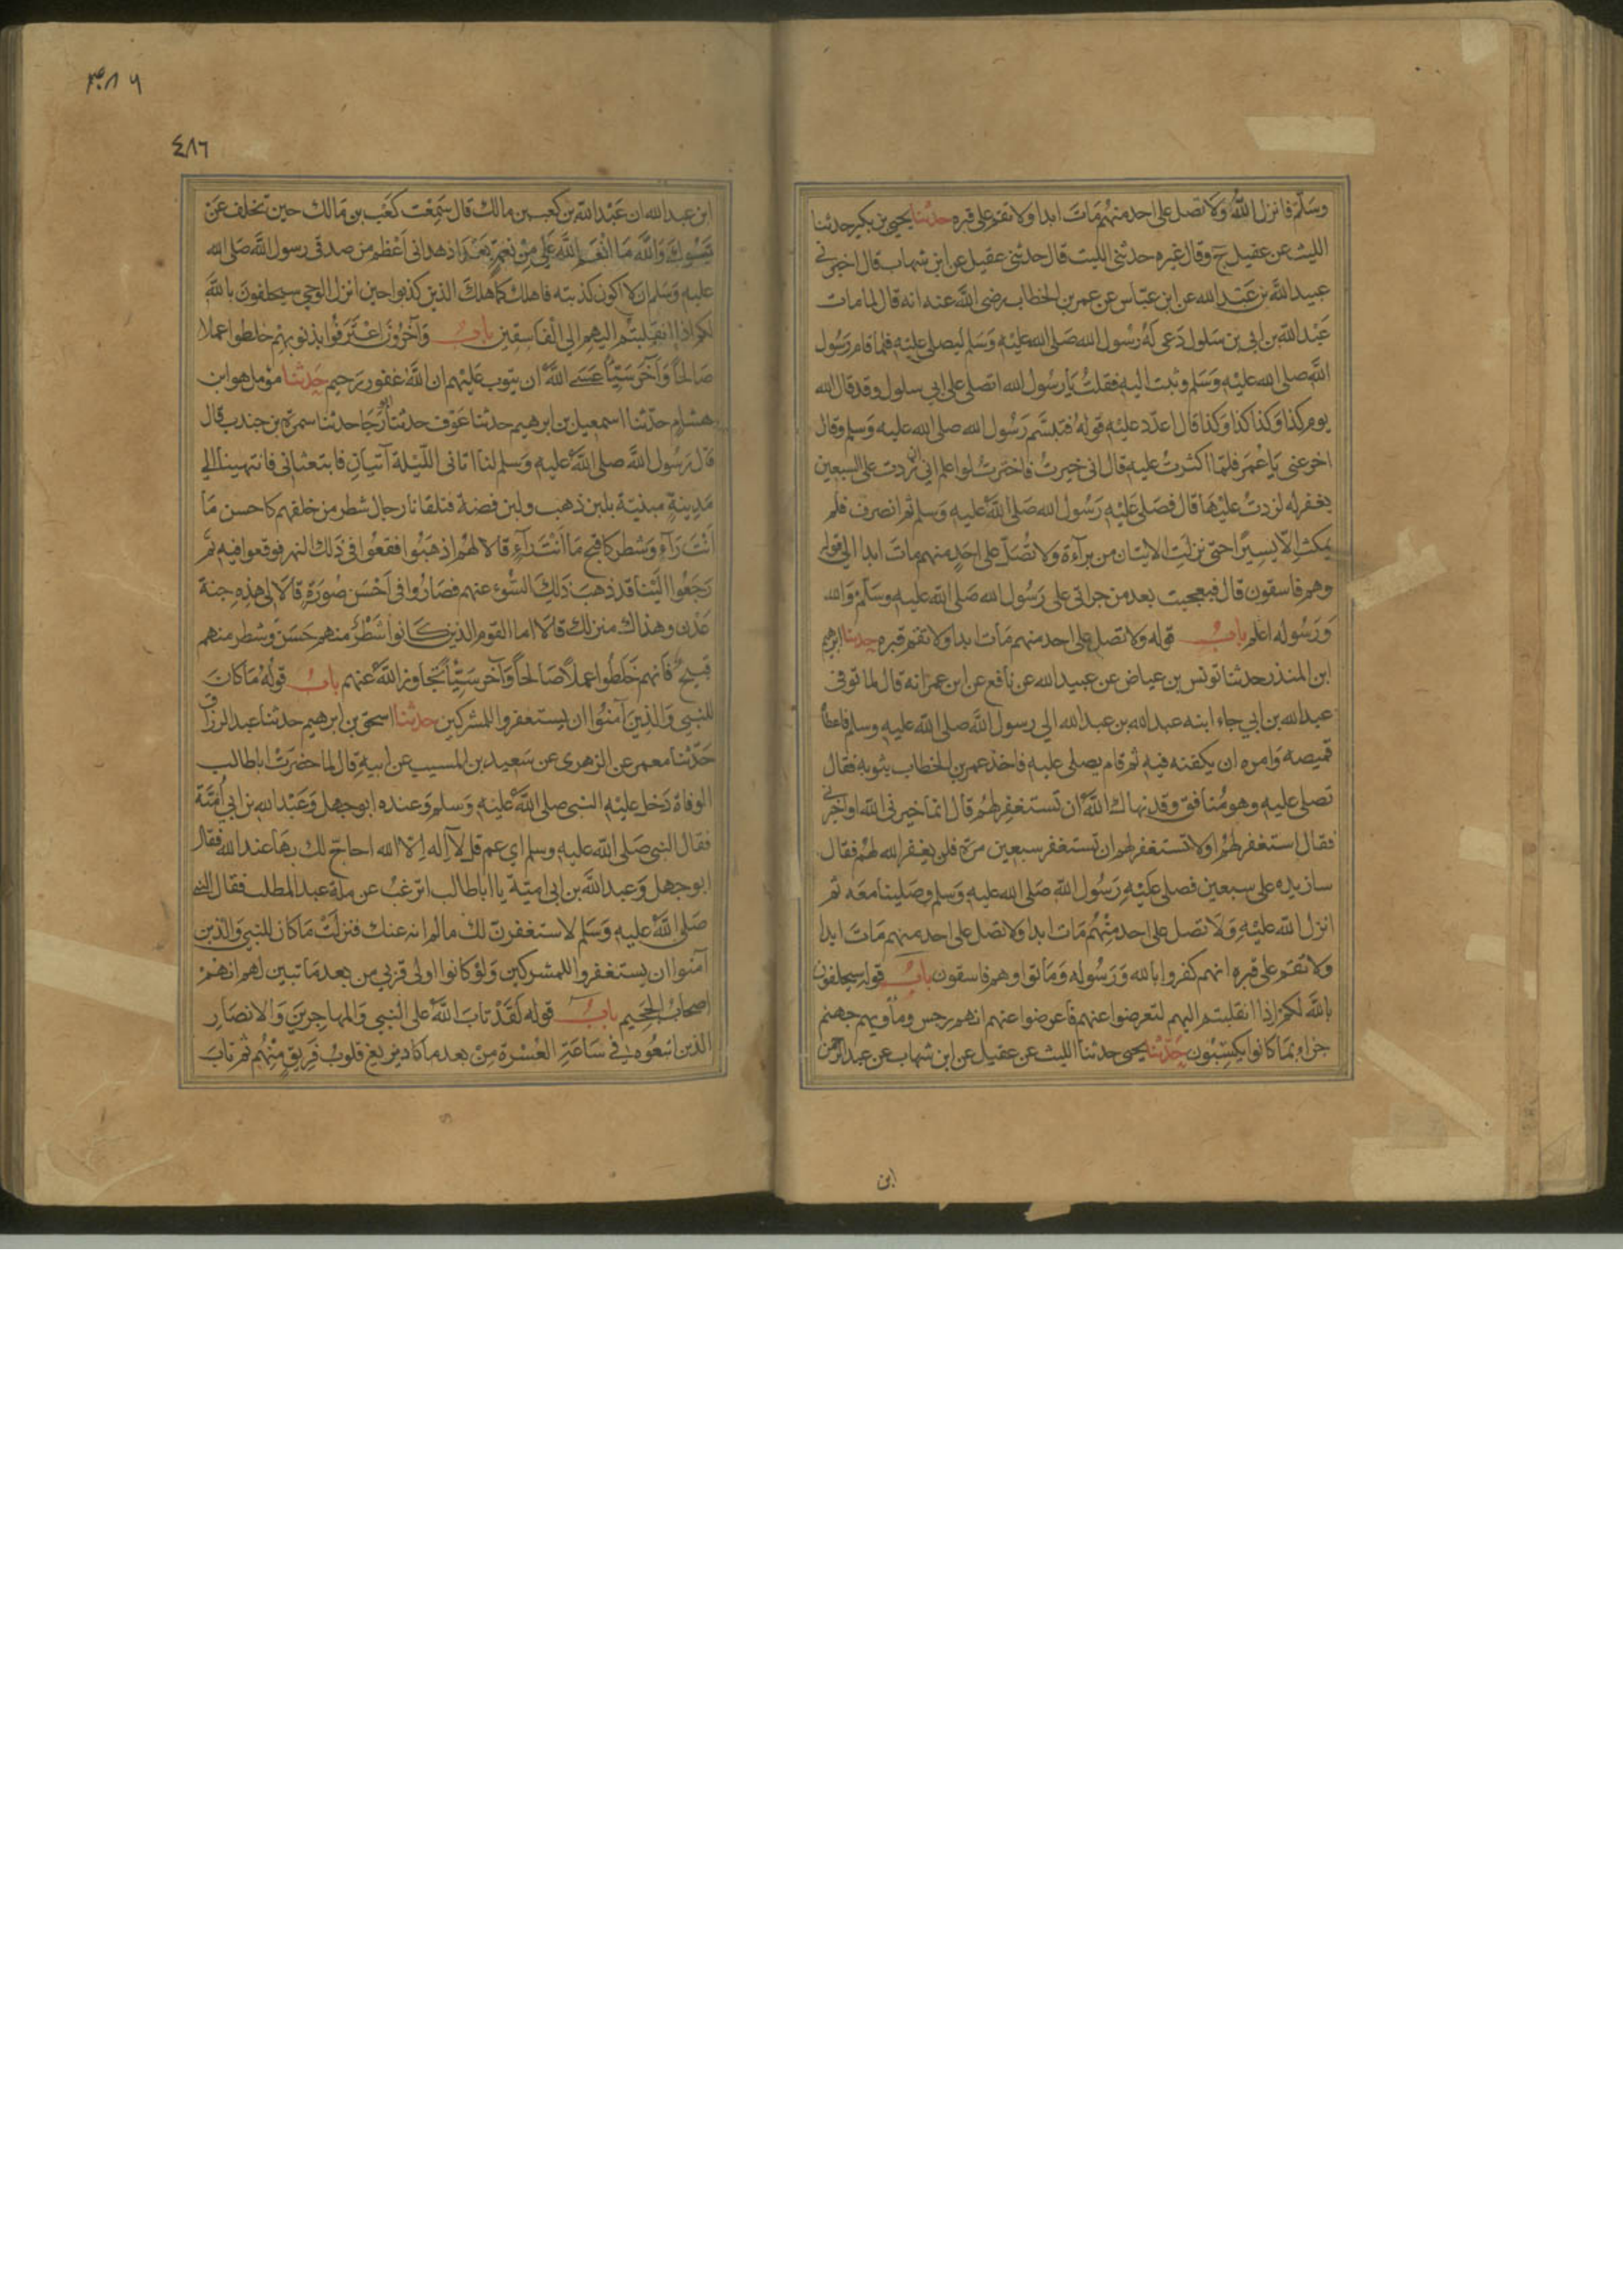 وسلم فانزل الله ولا تصل على احد منهم مات ابدا ولا تقم على قبره حدثنا يحيى بن بكير حدثنا
الليث عن عقيل ح وقال غيره حدثني الليث قال حدثني عقيل عن ابن شهاب قال اخبرني
عبيد الله بن عبد الله عن ابن عباس عن عمر بن الخطاب رضى الله عنه انه قال لما مات
عبد الله بن ابي بن سلول دعى له رسول الله صلى الله عليه وسلم ليصلي عليه فلما قام رسول
الله صلى الله عليه وسلم وثبت اليه فقلت يا رسول الله اتصلي على ابي سلول وقد قال الله
يوم كذا وكذا كذا وكذا قال اعدد عليه قوله فتبسم رسول الله صلى الله عليه وسلم وقال
اخر عني يا عمر فلما اكثرت عليه قال اني خيرت فاخترت لو اعلم اني ان زدت على السبعين
يغفر له لزدت عليها قال فصلى عليه رسول الله صلى الله عليه وسلم ثم انصرف فلم
يمكث الا يسيرا حتى نزلت الايتان من برآءة ولا تصل على احد منهم مات ابدا الى قوله
وهم فاسقون قال فعجبت بعد من جراتي على رسول الله صلى الله عليه وسلم والله
ورسوله اعلم باب قوله ولا تصل على احد منهم مات ابدا ولا تقم قبره حدثنا ابرهيم
ابن المنذر حدثنا تونس بن عياض عن عبيد الله عن نافع عن ابن عمر انه قال لما توفى
عبد الله بن ابي جاء ابنه عبد الله بن عبد الله الي رسول الله صلى الله عليه وسلم فاعطاه
قميصه وامره ان يكفنه فيه ثم قام يصلى عليه فاخذ عمر بن الخطاب بثوبه فقال
تصلى عليه وهو منافق وقد نهاك الله ان تستغفر لهم قال انما خيرني الله او اخبرني
فقال استغفر لهم او لا تستغفر لهم ان تستغفر سبعين مرة فلن يغفر الله لهم فقال
سازيده على سبعين فصلى عليه رسول الله صلى الله عليه وسلم وصلينا معه ثم
انزل الله عليه ولا تصل على احد منهم مات ابدا ولا تصل على احد منهم مات ابدا
ولا تقم على قبره انهم كفروا بالله ورسوله وماتوا وهم فاسقون باب قوله سيحلفون
بالله لكم اذا انقلبتم اليهم لتعرضوا عنهم فاعرضوا عنهم انهم رجس ومأويهم جهنم
جزاء بما كانوا يكسبون حدثنا يحيى حدثنا الليث عن عقيل عن ابن شهاب عن عبد الرحمن
ابن
٤٨٦
ابن عبد الله ان عبد الله بن كعب بن مالك قال سمعت كعب بن مالك حين تخلف عن
تبوك والله ما انعم الله علي من نعمة بعد اذ هداني اعظم من صدقي رسول الله صلى الله
عليه وسلم ان لا اكون كذبته فاهلك كما هلك الذين كذبوا حين انزل الوحي سيحلفون بالله
لكم اذا انقلبتم اليهم الى الفاسقين باب وآخرون اعترفوا بذنوبهم خلطوا عملا
صالحا وآخر سيئا عسى الله ان يتوب عليهم ان الله غفور رحيم حدثنا مؤمل هو ابن
هشام حدثنا اسمعيل بن ابرهيم حدثنا عوف حدثنا ابو رجا حدثنا سمرة بن جندب قال
قال رسول الله صلى الله عليه وسلم لنا اتاني الليلة آتيان فابتعثاني فانتهينا الي
مدينة مبنية بلبن ذهب ولبن فضة فتلقانا رجال شطر من خلقهم كاحسن ما
انت رآء وشطر كاقبح ما انت رآء قالا لهم اذهبوا فقعوا في ذلك النهر فوقعوا فيه ثم
رجعوا الينا قد ذهب ذلك السوء عنهم فصاروا في احسن صورة قالا لي هذه جنة
عدن وهذاك منزلك قالا اما القوم الذين كانوا شطر منهم حسن وشطر منهم
قبيح فانهم خلطوا عملا صالحا وآخر سيئا تجاوز الله عنهم باب قوله ما كان
للنبي والذين آمنوا ان يستغفروا للمشركين حدثنا اسحق بن ابرهيم حدثنا عبد الرزاق
حدثنا معمر عن الزهرى عن سعيد بن المسيب عن ابيه قال لما حضرت اباطالب
الوفاة دخل عليه النبى صلى الله عليه وسلم وعنده ابو جهل وعبد الله بن ابي امية
فقال النبى صلى الله عليه وسلم اي عم قل لا آله الا الله احاج لك بها عند الله فقال
ابو جهل وعبد الله بن ابى امية يا اباطالب اترغب عن ملة عبد المطلب فقال النبي
صلى الله عليه وسلم لاستغفرن لك مالم انه عنك فنزلت ما كان للنبي والذين
آمنوا ان يستغفروا للمشركين ولو كانوا اولى قربي من بعد ما تبين لهم انهم
اصحاب الجحيم باب قوله لقد تاب الله على النبي والمهاجرين والانصار
الذين اتبعوه في ساعة العسرة من بعد ما كاد يزيغ قلوب فريق منهم ثم تاب